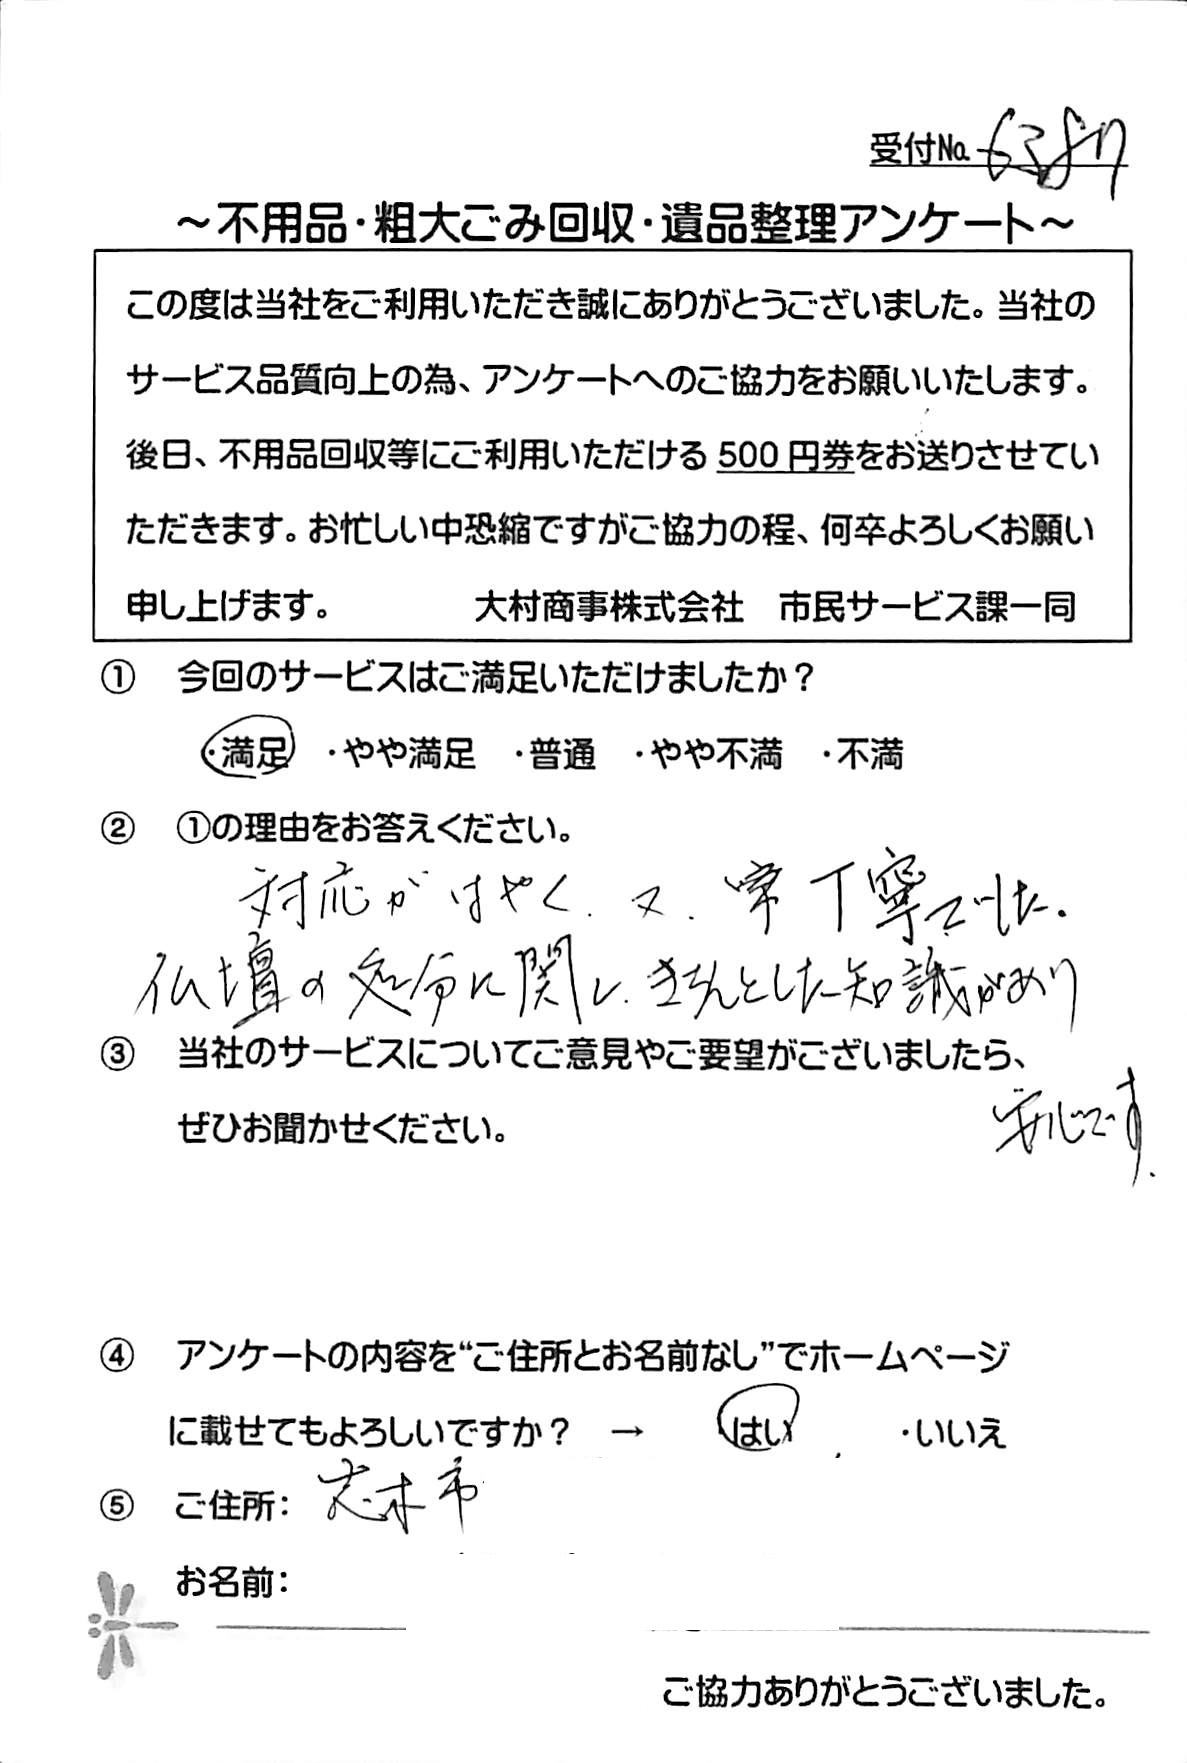 受付No. 6387
～不用品・粗大ごみ回収・遺品整理アンケート～
この度は当社をご利用いただき誠にありがとうございました。当社の
サービス品質向上の為、アンケートへのご協力をお願いいたします。
後日、不用品回収等にご利用いただける500円券をお送りさせてい
ただきます。お忙しい中恐縮ですがご協力の程、何卒よろしくお願い
申し上げます。 大村商事株式会社 市民サービス課一同
① 今回のサービスはご満足いただけましたか？
・満足 ・やや満足 ・普通 ・やや不満 ・不満
② ①の理由をお答えください。
対応がはやく、又、常丁寧でした。
仏壇の処分に関し、きちんとした知識があり
安心です。
③ 当社のサービスについてご意見やご要望がございましたら、
ぜひお聞かせください。
④ アンケートの内容を“ご住所とお名前なし”でホームページ
に載せてもよろしいですか？ → ・はい ・いいえ
⑤ ご住所： 志木市
お名前：
ご協力ありがとうございました。